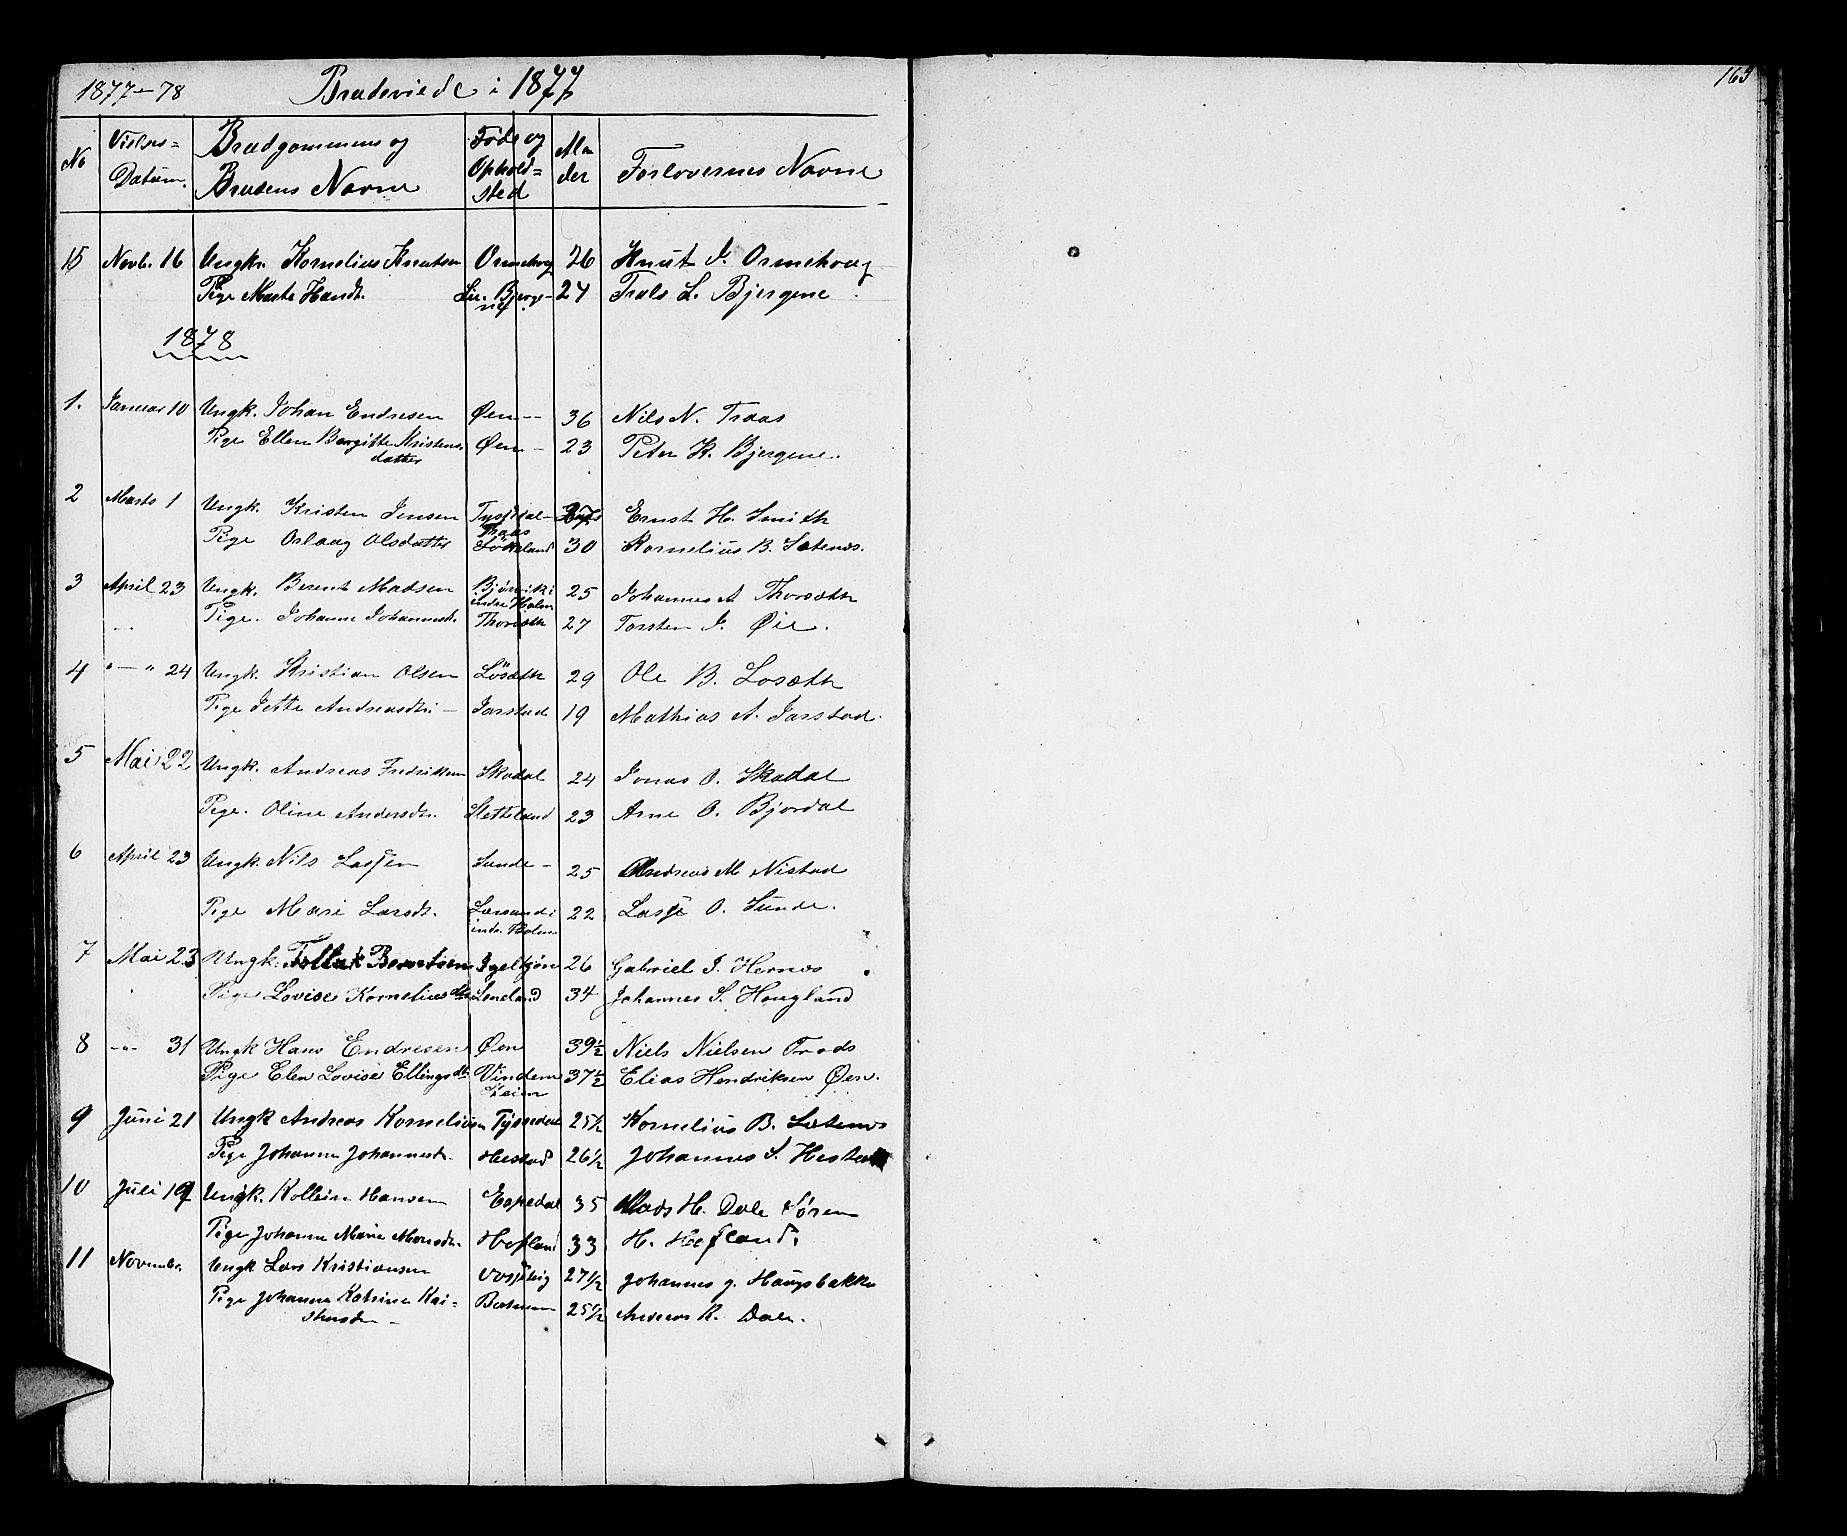 1877-78 Brudeviede i 1877
No Vielses= Datum. Brudgommens og Brudens Navne Føde og Ophold= sted Al- der Forlovernes Navne
15 Novb. 16 Ungk. Kornelius Knutsen Ormehoug 26 Knut J. Ormehoug
Pige Marte Hansdt. Bjerge- ne 24 Truls L. Bjergene
1878
1. Januar 10 Ungk. Johan Endresen Øen -- 36 Nils N. Traas
Pige Ellen Bergitte Kristens. datter Øen - 23 Peter K. Bjergene.
2 Marts 1 Ungk. Kristen Jensen Tysdal- Ernst H. Smith
Pige Oslaug Olsdatter 30 Kornelius B. Sætenes.
3 April 23 Ungk. Berent Madsen Bjørnvik i indre Holm 25 Johannes A Thorsæth
Pige. Johanne Johannesdt. Thorsæth 27 Torsten J. Øie.
4 " — " 24 Ungk. Kristian Olsen Løsæth 29 Ole B. Losæth
Pige Jette Andreasdtr. — Jarstad 19 Mathias A. Jarstad.
5 Mai 22 Ungk. Andreas Fredriksen Skadal 24 Jonas O. Skadal
Pige. Oline Andersdtr. Sletteland 23 Arne O. Bjordal
6 April 23 Ungk. Nils Lassen Sunde - 25 Andreas M Nistad
Pige Mari Larsdt. indr. Holm 22 Lasse O. Sunde.
7 Mai 23 Ungk. Tollak Berntsen Igeltjøn 26 Gabriel J. Hernes
Pige Lovise Kornelius dtr Leneland 34 Johannes S. Hougland
8 -"- 31 Ungk Hans Endresen Øen 39½ Niels Nielsen Traas
Pige Elen Lovise Ellings dtr Vindem 37½ Elias Hendriksen Øen.
9 Juni 21 Ungk Andreas Kornelius Tyssedal 25½ Kornelius B. Sætenes
Pige Johanne Johannesdt. Hestad 26½ Johannes S. Hestad
10 Juli 19 Ungk. Kollein Hansen Espedal 35 Mads H. Dale Søren
Pige Johanne Marie Monsdt. Hofland 33 H. Hofland.
11 Novembr. Ungk Lars Kristiansen 27½ Johannes J. Haugsbakke
Pige Johanne Katrine Kri= stensdtr - 25½ Andreas R. Dale.
163